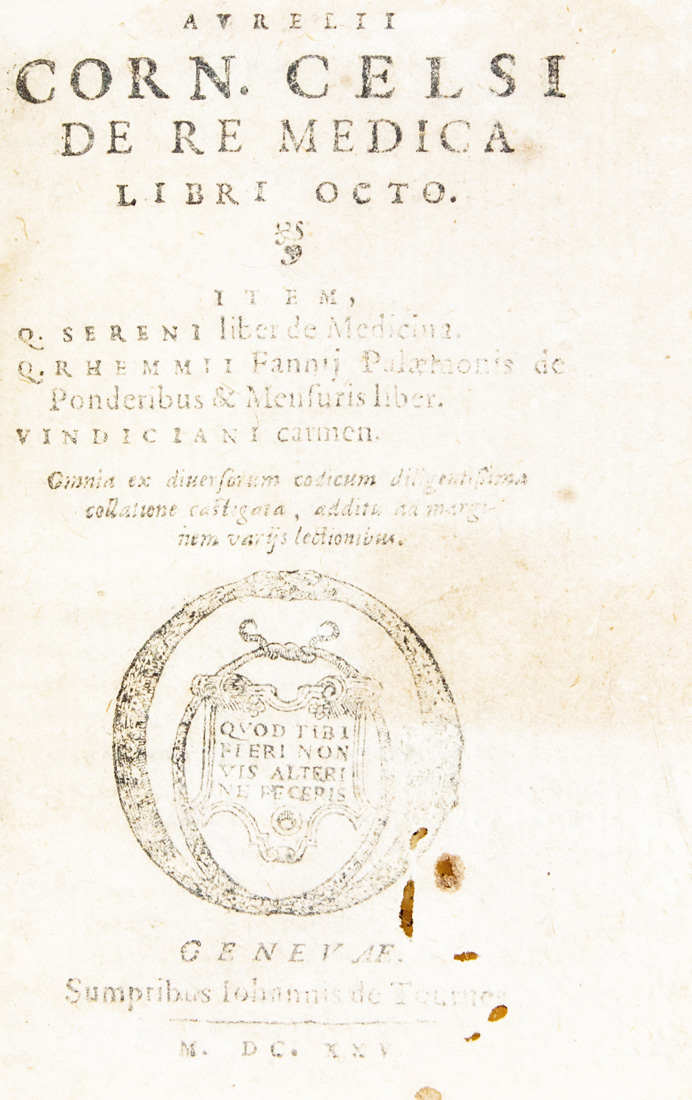 AVRELII
CORN. CELSI
DE RE MEDICA
LIBRI OCTO.
ITEM,
Q. SERENI liber de Medicina.
Q. RHEMMII Fannij Palæmonis de
Ponderibus & Menſuris liber.
VINDICIANI carmen.
Omnia ex diuerſorum codicum diligentiſſima
collatione caſtigata, additis ad margi-
nem varijs lectionibus.
QVOD TIBI
FIERI NON
VIS ALTERI
NE FECERIS
GENEVÆ.
Sumptibus Iohannis de Tournes
M. DC. XXV